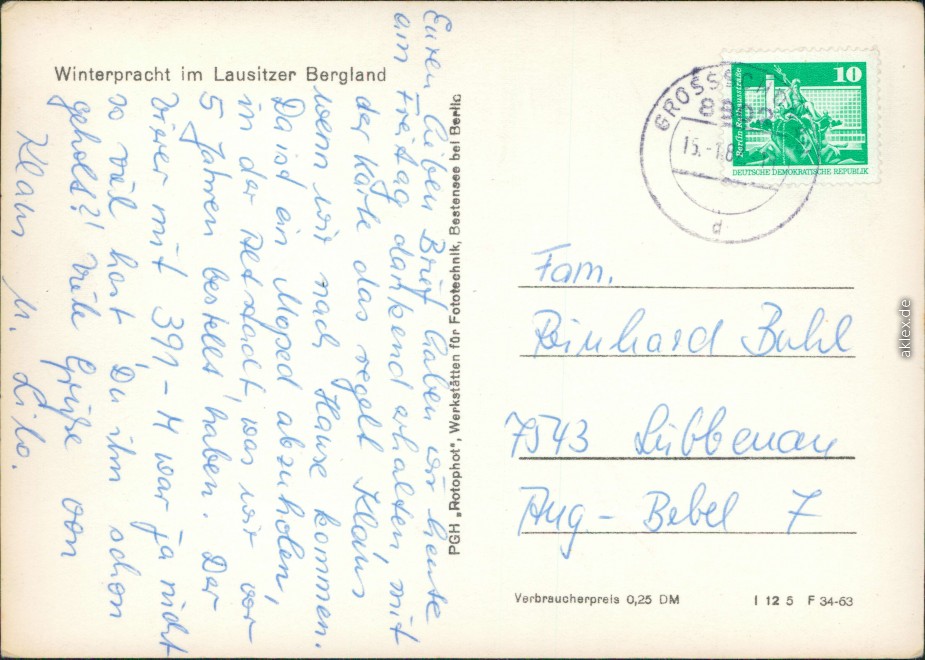 Winterpracht im Lausitzer Bergland
Euren lieben Brief haben wir heute
am Freitag dankend erhalten, mit
der Karte das regelt Klaus
wenn wir nach Hause kommen.
Da ist ein Moped abzuholen,
in der Altstadt, was wir vor
5 Jahren bestellt haben. Der
Vierer mit 391,- M war ja nicht
so viel hast Du ihm schon
geholt?! Viele Grüße von
Klaus u. Lilo.
PGH „Rotophot", Werkstätten für Fototechnik, Bestensee bei Berlin
GROSSSC
15.-1.8
d
10
Berlin-Rathausstraße
DEUTSCHE DEMOKRATISCHE REPUBLIK
Fam.
Reinhard Buhl
7543 Lübbenau
Aug.- Bebel 7
Verbraucherpreis 0,25 DM
I 12 5 F 34-63
aklex.de